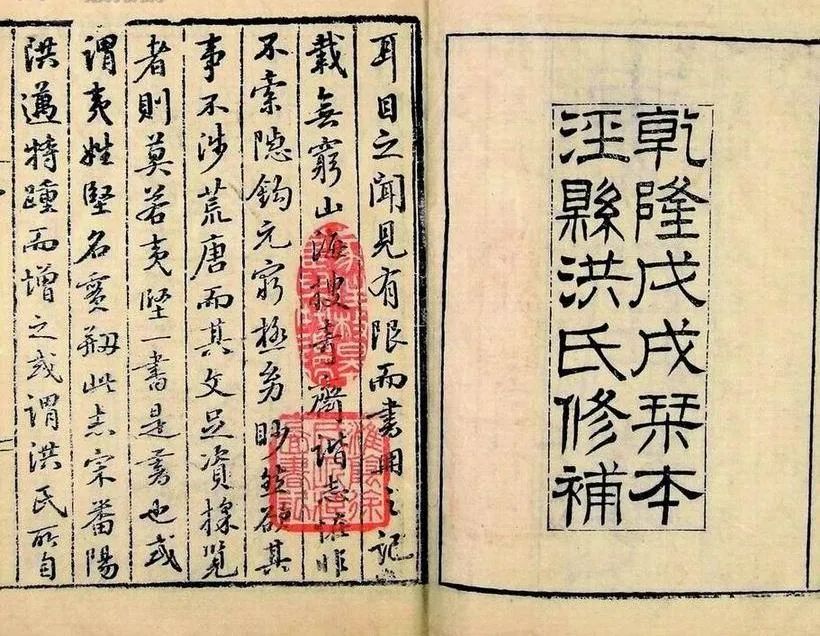 乾隆戊戌栞本
涇縣洪氏修補
耳目之聞見有限而書冊之記
載無窮山海搜奇齊諧志怪非
不索隐鈎元窮極幼眇並欲其
事不涉荒唐而其文足資採览
者則莫若夷堅一書是書也或
謂夷姓堅名實剏此志宗番陽
洪邁特踵而增之或謂洪氏所自